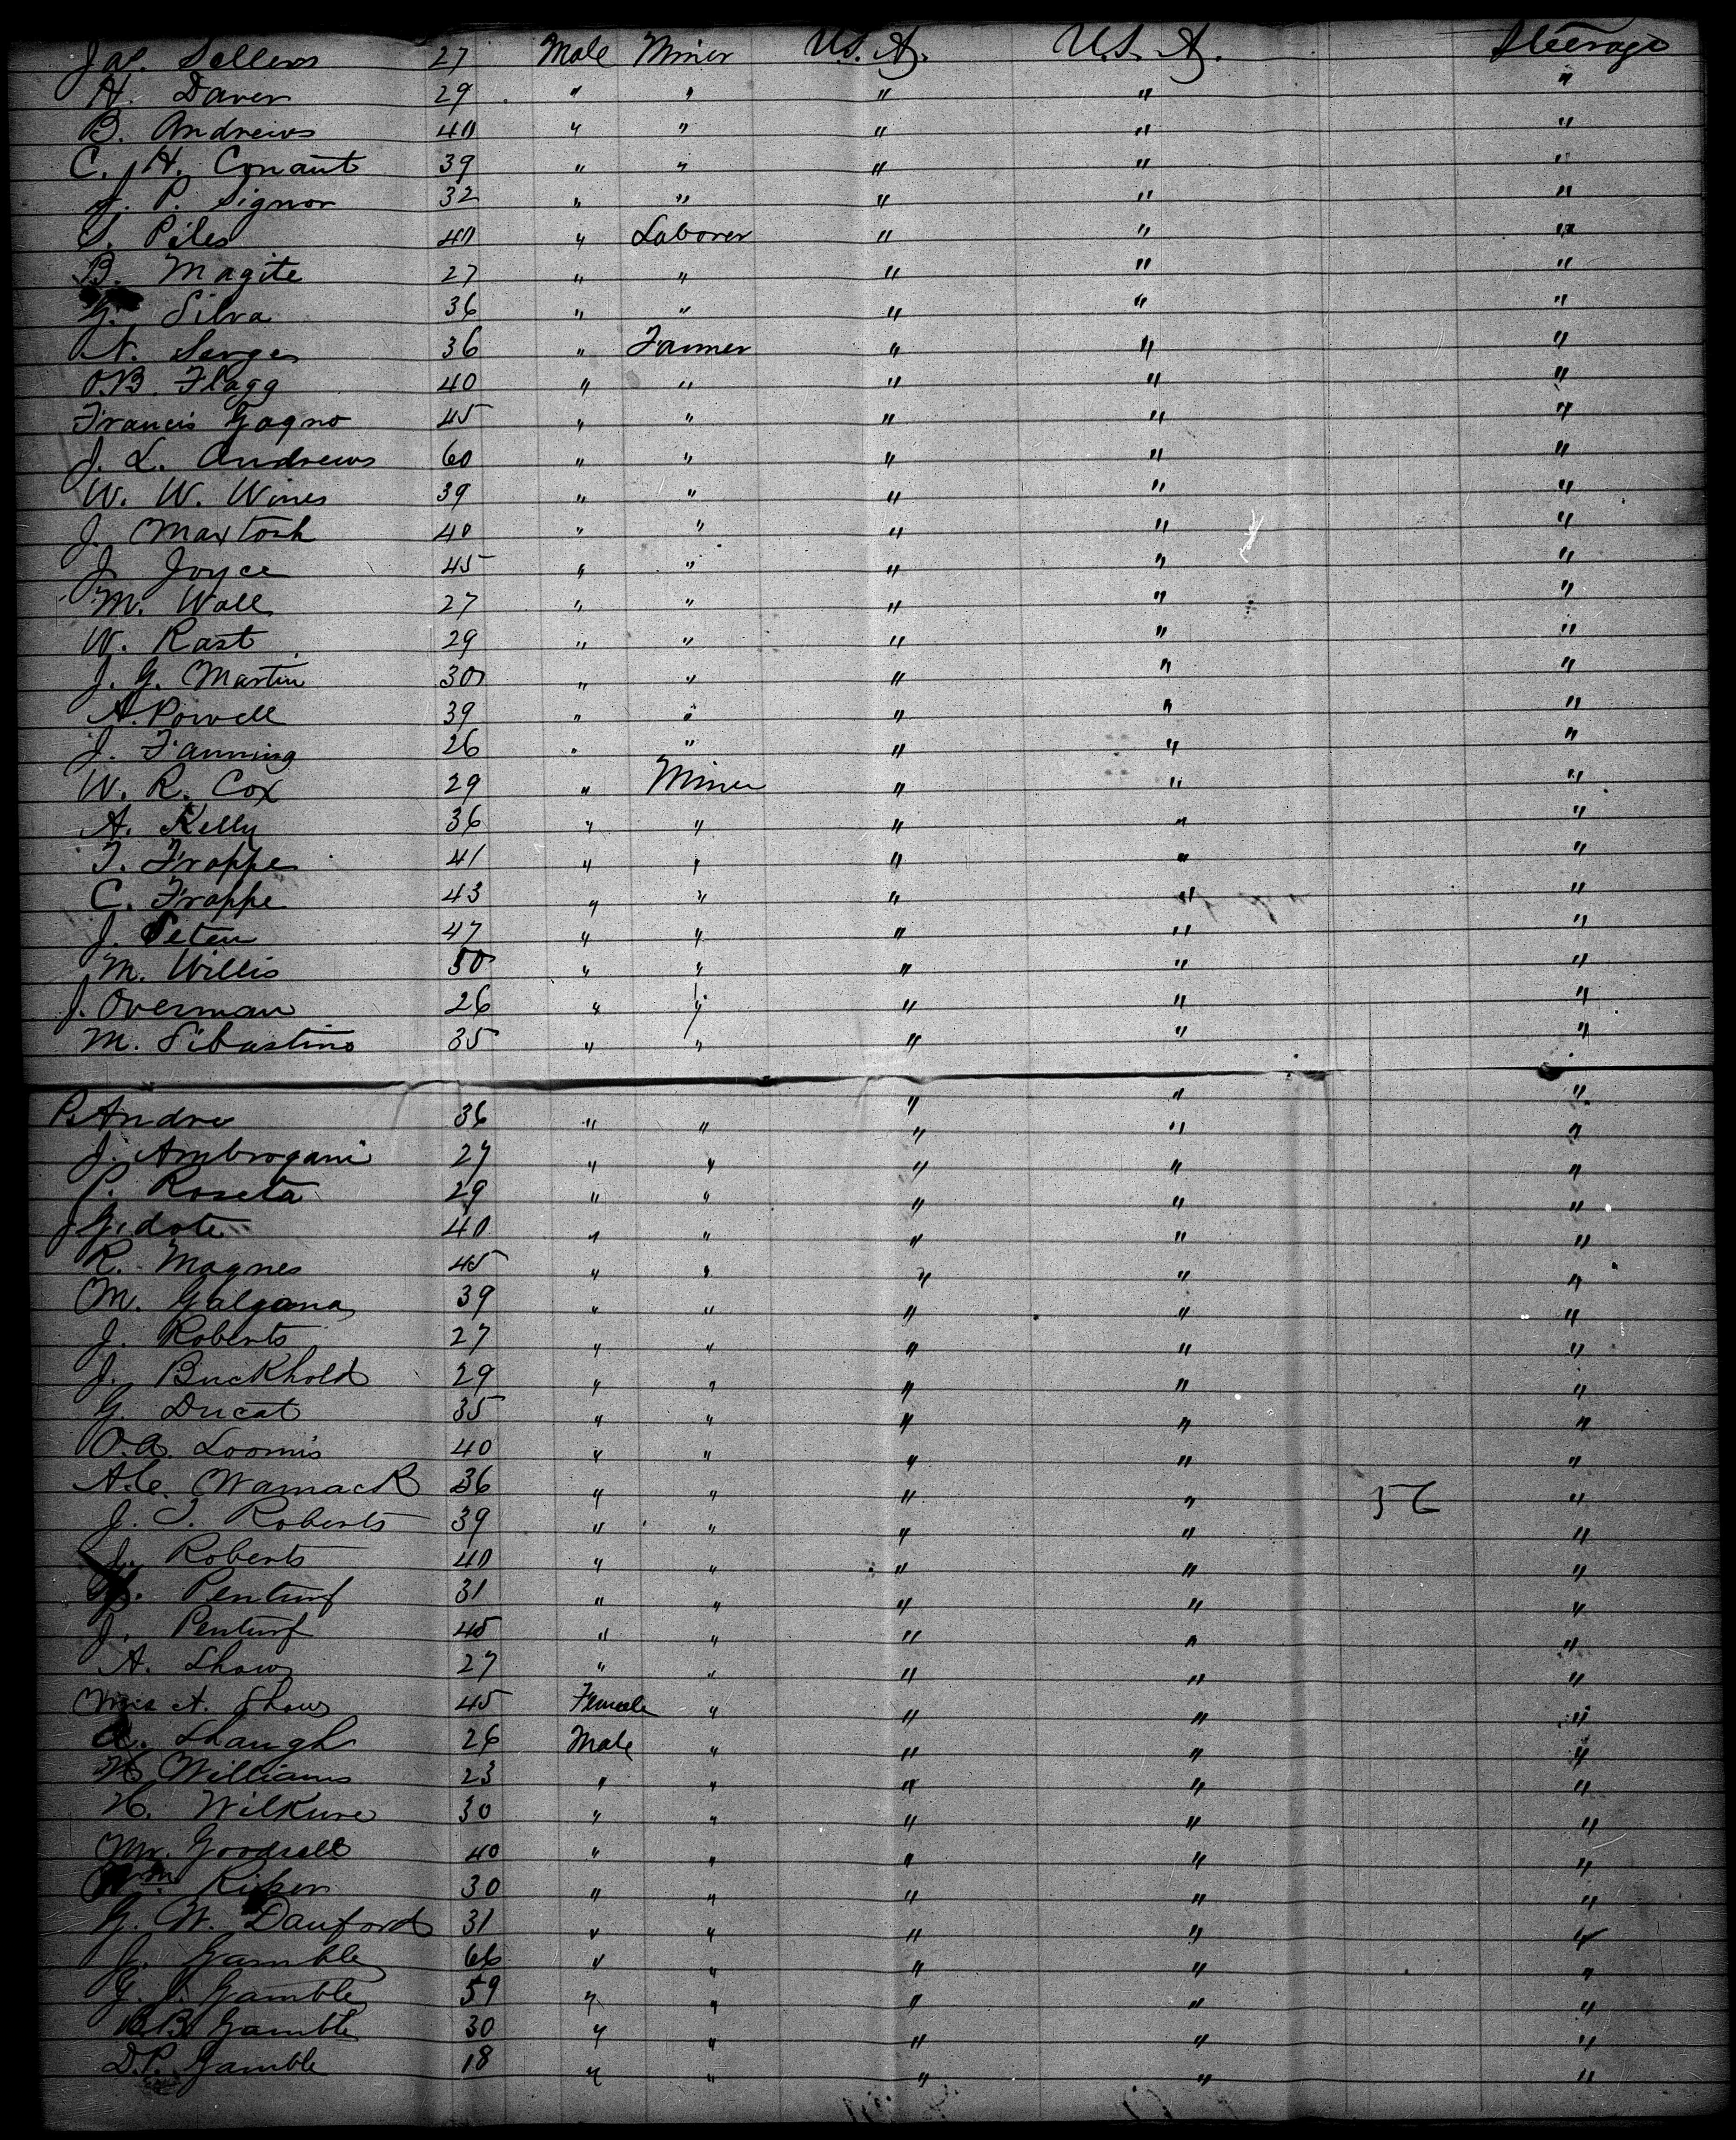 Jas. Sellers 27 Male Miner U.S.A. U.S.A. Steerage
H. Daven 29 " " " " "
B. Andrews 40 " " " " "
C. H. Conant 39 " " " " "
J. P. Signor 32 " " " " "
S. Piles 40 " Laborer " " "
B. Magite 27 " " " " "
G. Silva 36 " " " " "
N. Serges 36 " Farmer " " "
O.B. Flagg 40 " " " " "
Francis Gagno 45 " " " " "
J. L. Andrews 60 " " " " "
W. W. Wines 39 " " " " "
J. Maxtosh 40 " " " " "
J. Joyce 45 " " " " "
M. Wall 27 " " " " "
W. Rast 29 " " " " "
J. G. Martin 30 " " " " "
A. Powell 39 " " " " "
J. Fanning 26 " " " " "
W. R. Cox 29 " Miner " " "
A. Kelly 36 " " " " "
T. Frappe 41 " " " " "
C. Frappe 43 " " " " "
J. Peten 47 " " " " "
M. Willis 50 " " " " "
J. Overman 26 " " " " "
M. Sibastino 35 " " " " "
P. Andre 36 " " " " "
J. Ambrogani 27 " " " " "
P. Roseta 29 " " " " "
J Gidote 40 " " " " "
R. Magnes 45 " " " " "
M. Galgana 39 " " " " "
J. Roberts 27 " " " " "
J. Buckhold 29 " " " " "
G. Ducat 35 " " " " "
O.A. Loomis 40 " " " " "
A.C. Wamack 36 " " " " "
J. T. Roberts 39 " " " " "
J. Roberts 40 " " " " "
Penturf 31 " " " " "
J. Penturf 45 " " " " "
A. Shaw 27 " " " " "
Mrs A. Shaw 45 Female " " " "
A. Shaugh 26 Male " " " "
W Williams 23 " " " " "
H. Wilkure 30 " " " " "
Mr. Goodsell 40 " " " " "
Wm. Riker 30 " " " " "
G. W. Danford 31 " " " " "
J. Gamble 66 " " " " "
G. J. Gamble 59 " " " " "
B.B. Gamble 30 " " " " "
D.P. Gamble 18 " " " " "